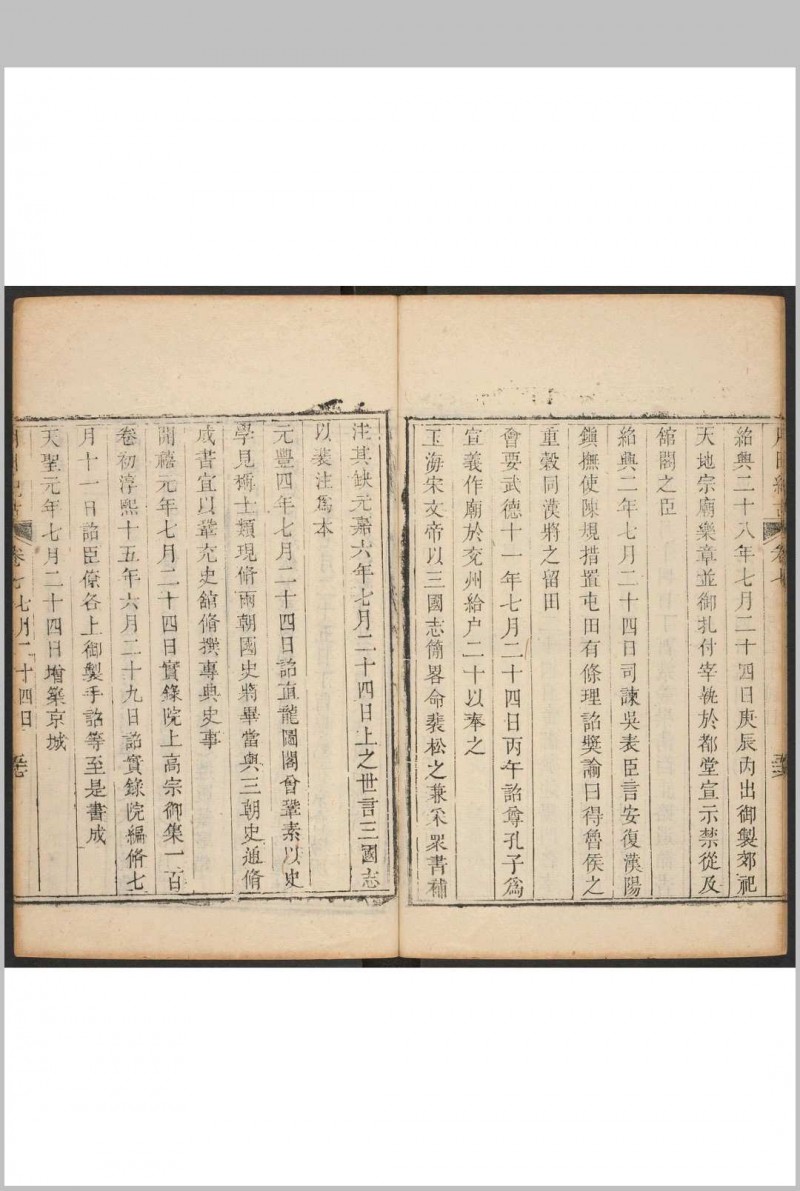 紹興二十八年七月二十四日庚辰內出御製郊祀
天地宗廟樂章並御扎付宰執於都堂宣示禁從及
舘閣之臣
紹興二年七月二十四日司諫吳表臣言安復漢陽
鎮撫使陳規措置屯田有條理詔獎諭曰得魯侯之
重穀同漢將之留田
會要武德十一年七月二十四日丙午詔尊孔子爲
宣義作廟於兗州給户二十以奉之
玉海宋文帝以三國志簡畧命裴松之兼采眾書補
注其缺元嘉六年七月二十四日上之世言三國志
以裴注爲本
元豐四年七月二十四日詔直龍圖閣曾鞏素以史
學見稱士類現脩兩朝國史將畢當與三朝史通脩
成書宜以鞏充史舘脩撰專典史事
開禧元年七月二十四日實錄院上高宗御集一百
卷初淳熙十五年六月二十九日詔實錄院編脩七
月十一日詔臣僚各上御製手詔等至是書成
天聖元年七月二十四日增築京城
卷七七月二十四日